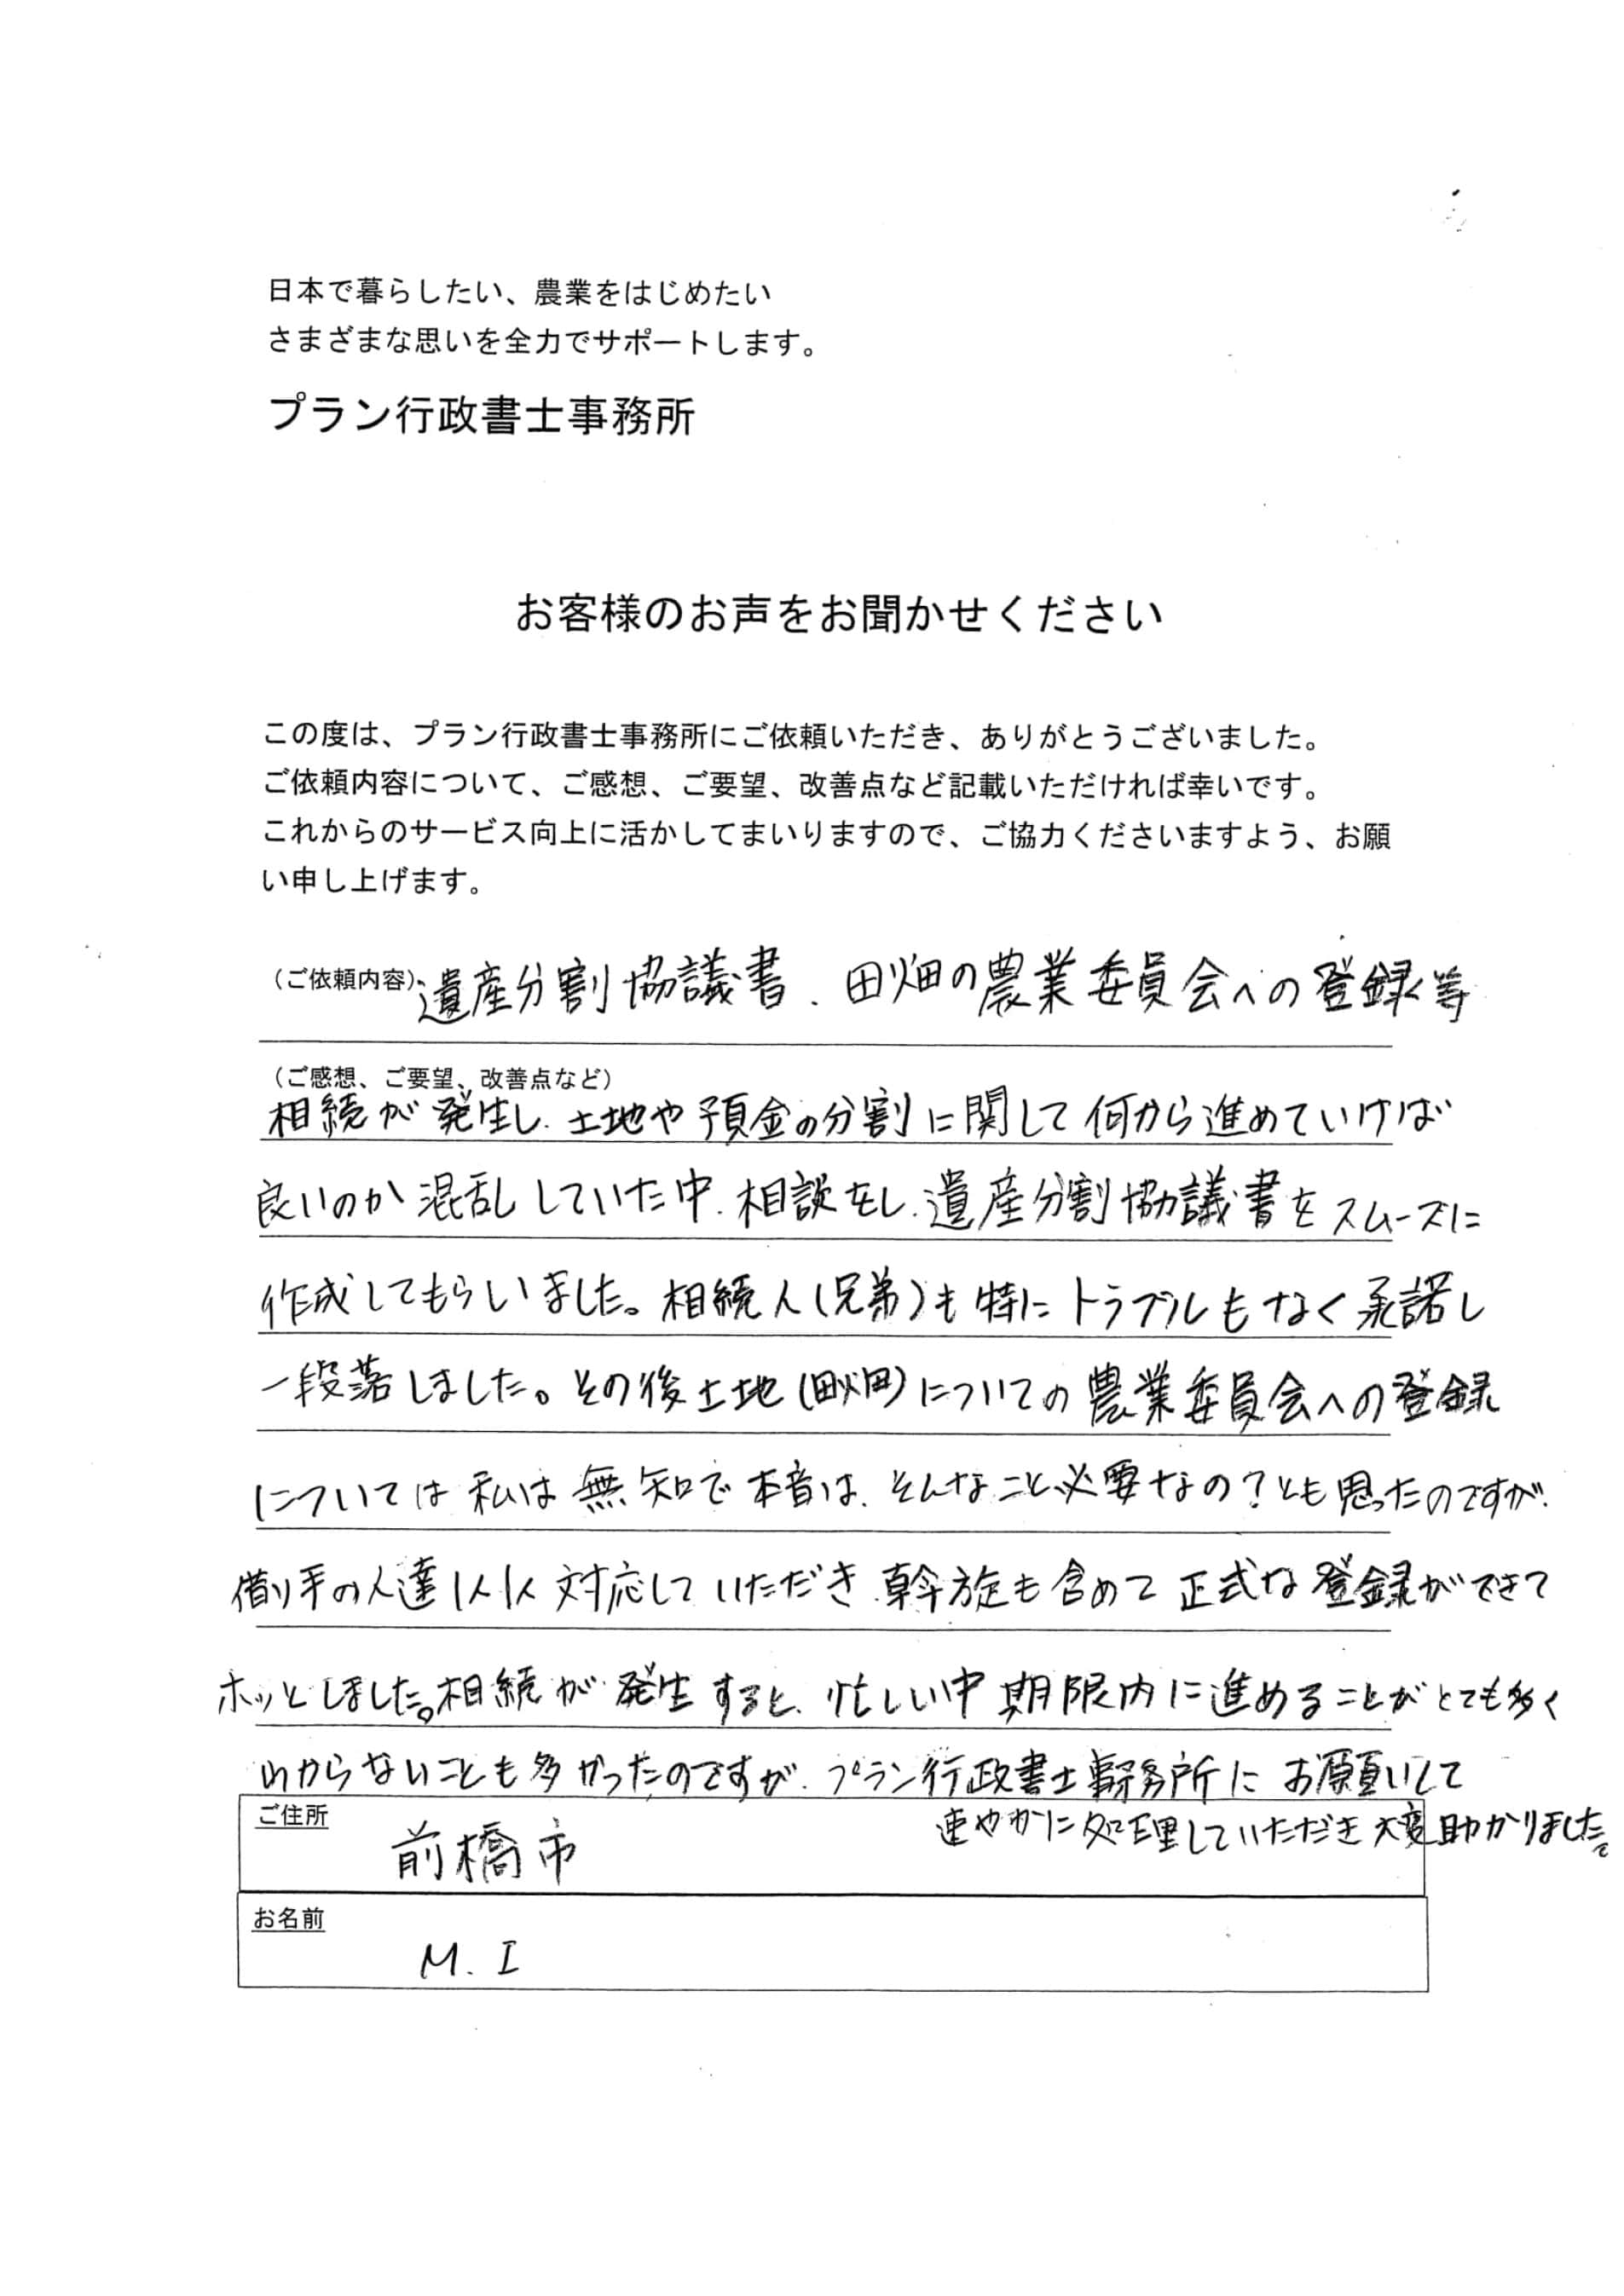 日本で暮らしたい、農業をはじめたい
さまざまな思いを全力でサポートします。
プラン行政書士事務所
お客様のお声をお聞かせください
この度は、プラン行政書士事務所にご依頼いただき、ありがとうございました。
ご依頼内容について、ご感想、ご要望、改善点など記載いただければ幸いです。
これからのサービス向上に活かしてまいりますので、ご協力くださいますよう、お願
い申し上げます。
（ご依頼内容）遺産分割協議書、田畑の農業委員会への登録等
（ご感想、ご要望、改善点など）
相続が発生し、土地や預金の分割に関して何から進めていけば
良いのか混乱していた中、相談をし、遺産分割協議書をスムーズに
作成してもらいました。相続人(兄弟)も特にトラブルもなく承諾し
一段落しました。その後土地(田畑)についての農業委員会への登録
については私は無知で本音は、そんなこと必要なの？とも思ったのですが、
借り手の人達1人1人対応していただき、斡旋も含めて正式な登録ができて
ホッとしました。相続が発生すると、忙しい中期限内に進めることがとても多く
わからないことも多かったのですが、プラン行政書士事務所にお願いして
速やかに処理していただき大変助かりました。
ご住所
前橋市
お名前
M. I